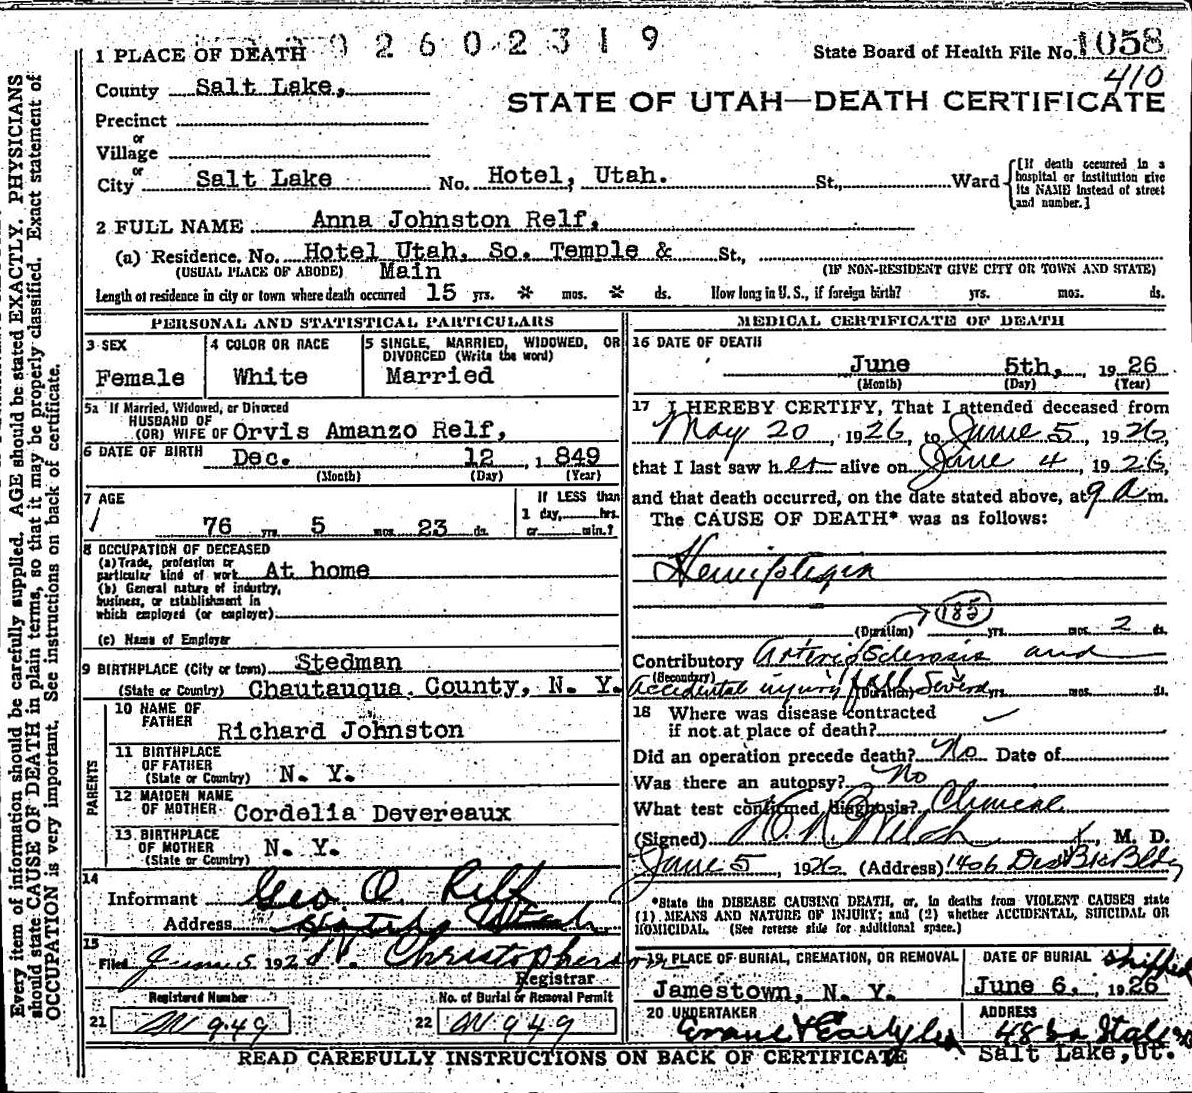 Every item of information should be carefully supplied. AGE should be stated EXACTLY. PHYSICIANS
should state CAUSE OF DEATH in plain terms, so that it may be properly classified. Exact statement of
OCCUPATION is very important. See instructions on back of certificate.
2 6 0 2 3 1 9
1 PLACE OF DEATH
State Board of Health File No. 1058
410
County Salt Lake,
STATE OF UTAH—DEATH CERTIFICATE
Precinct
or
Village
or
City Salt Lake No. Hotel, Utah. St., Ward
[If death occurred in a
hospital or institution give
its NAME instead of street
and number.]
2 FULL NAME Anna Johnston Relf,
(a) Residence. No. Hotel Utah, So. Temple & St.,
(USUAL PLACE OF ABODE) Main (IF NON-RESIDENT GIVE CITY OR TOWN AND STATE)
Length of residence in city or town where death occurred 15 yrs. * mos. * ds. How long in U. S., if foreign birth? yrs. mos. ds.
PERSONAL AND STATISTICAL PARTICULARS
3 SEX
Female
4 COLOR OR RACE
White
5 SINGLE, MARRIED, WIDOWED, OR
DIVORCED (Write the word)
Married
5a If Married, Widowed, or Divorced
HUSBAND OF
(OR) WIFE OF Orvis Amanzo Relf,
6 DATE OF BIRTH Dec. 12, 1849
(Month) (Day) (Year)
7 AGE
76 yrs. 5 mos. 23 ds.
If LESS than
1 day, hrs.
or min.?
8 OCCUPATION OF DECEASED
(a) Trade, profession or
particular kind of work At home
(b) General nature of industry,
business, or establishment in
which employed (or employer)
(c) Name of Employer
9 BIRTHPLACE (City or town) Stedman
(State or Country) Chautauqua County, N. Y.
PARENTS
10 NAME OF
FATHER
Richard Johnston
11 BIRTHPLACE
OF FATHER
(State or Country) N. Y.
12 MAIDEN NAME
OF MOTHER Cordelia Devereaux
13 BIRTHPLACE
OF MOTHER
(State or Country) N. Y.
14
Informant Geo. O. Relf
Address Hotel Utah
15
Filed June 5 1926 Christopherson
Registrar
Registered Number
No. of Burial or Removal Permit
21 949
22 949
MEDICAL CERTIFICATE OF DEATH
16 DATE OF DEATH
June 5th, 1926
(Month) (Day) (Year)
17 I HEREBY CERTIFY, That I attended deceased from
May 20, 1926, to June 5, 1926,
that I last saw her alive on June 4, 1926,
and that death occurred, on the date stated above, at 9 a m.
The CAUSE OF DEATH* was as follows:
Hemiplegia
185
(Duration) yrs. mos. 2 ds.
Contributory Arterio Sclerosis and
(Secondary)
accidental injury fall Severe (Duration) yrs. mos. ds.
18 Where was disease contracted
if not at place of death?
Did an operation precede death? No Date of
Was there an autopsy? No
What test confirmed diagnosis? Clinical
(Signed) Welch, M. D.
June 5, 1926 (Address) 1406 Des Bk Bldg
*State the DISEASE CAUSING DEATH, or, in deaths from VIOLENT CAUSES state
(1) MEANS AND NATURE OF INJURY; and (2) whether ACCIDENTAL, SUICIDAL OR
HOMICIDAL. (See reverse side for additional space.)
19 PLACE OF BURIAL, CREMATION, OR REMOVAL
Jamestown, N. Y.
DATE OF BURIAL shipped
June 6, 1926
20 UNDERTAKER
Evans & Early
ADDRESS
48 State
Salt Lake, Ut.
READ CAREFULLY INSTRUCTIONS ON BACK OF CERTIFICATE